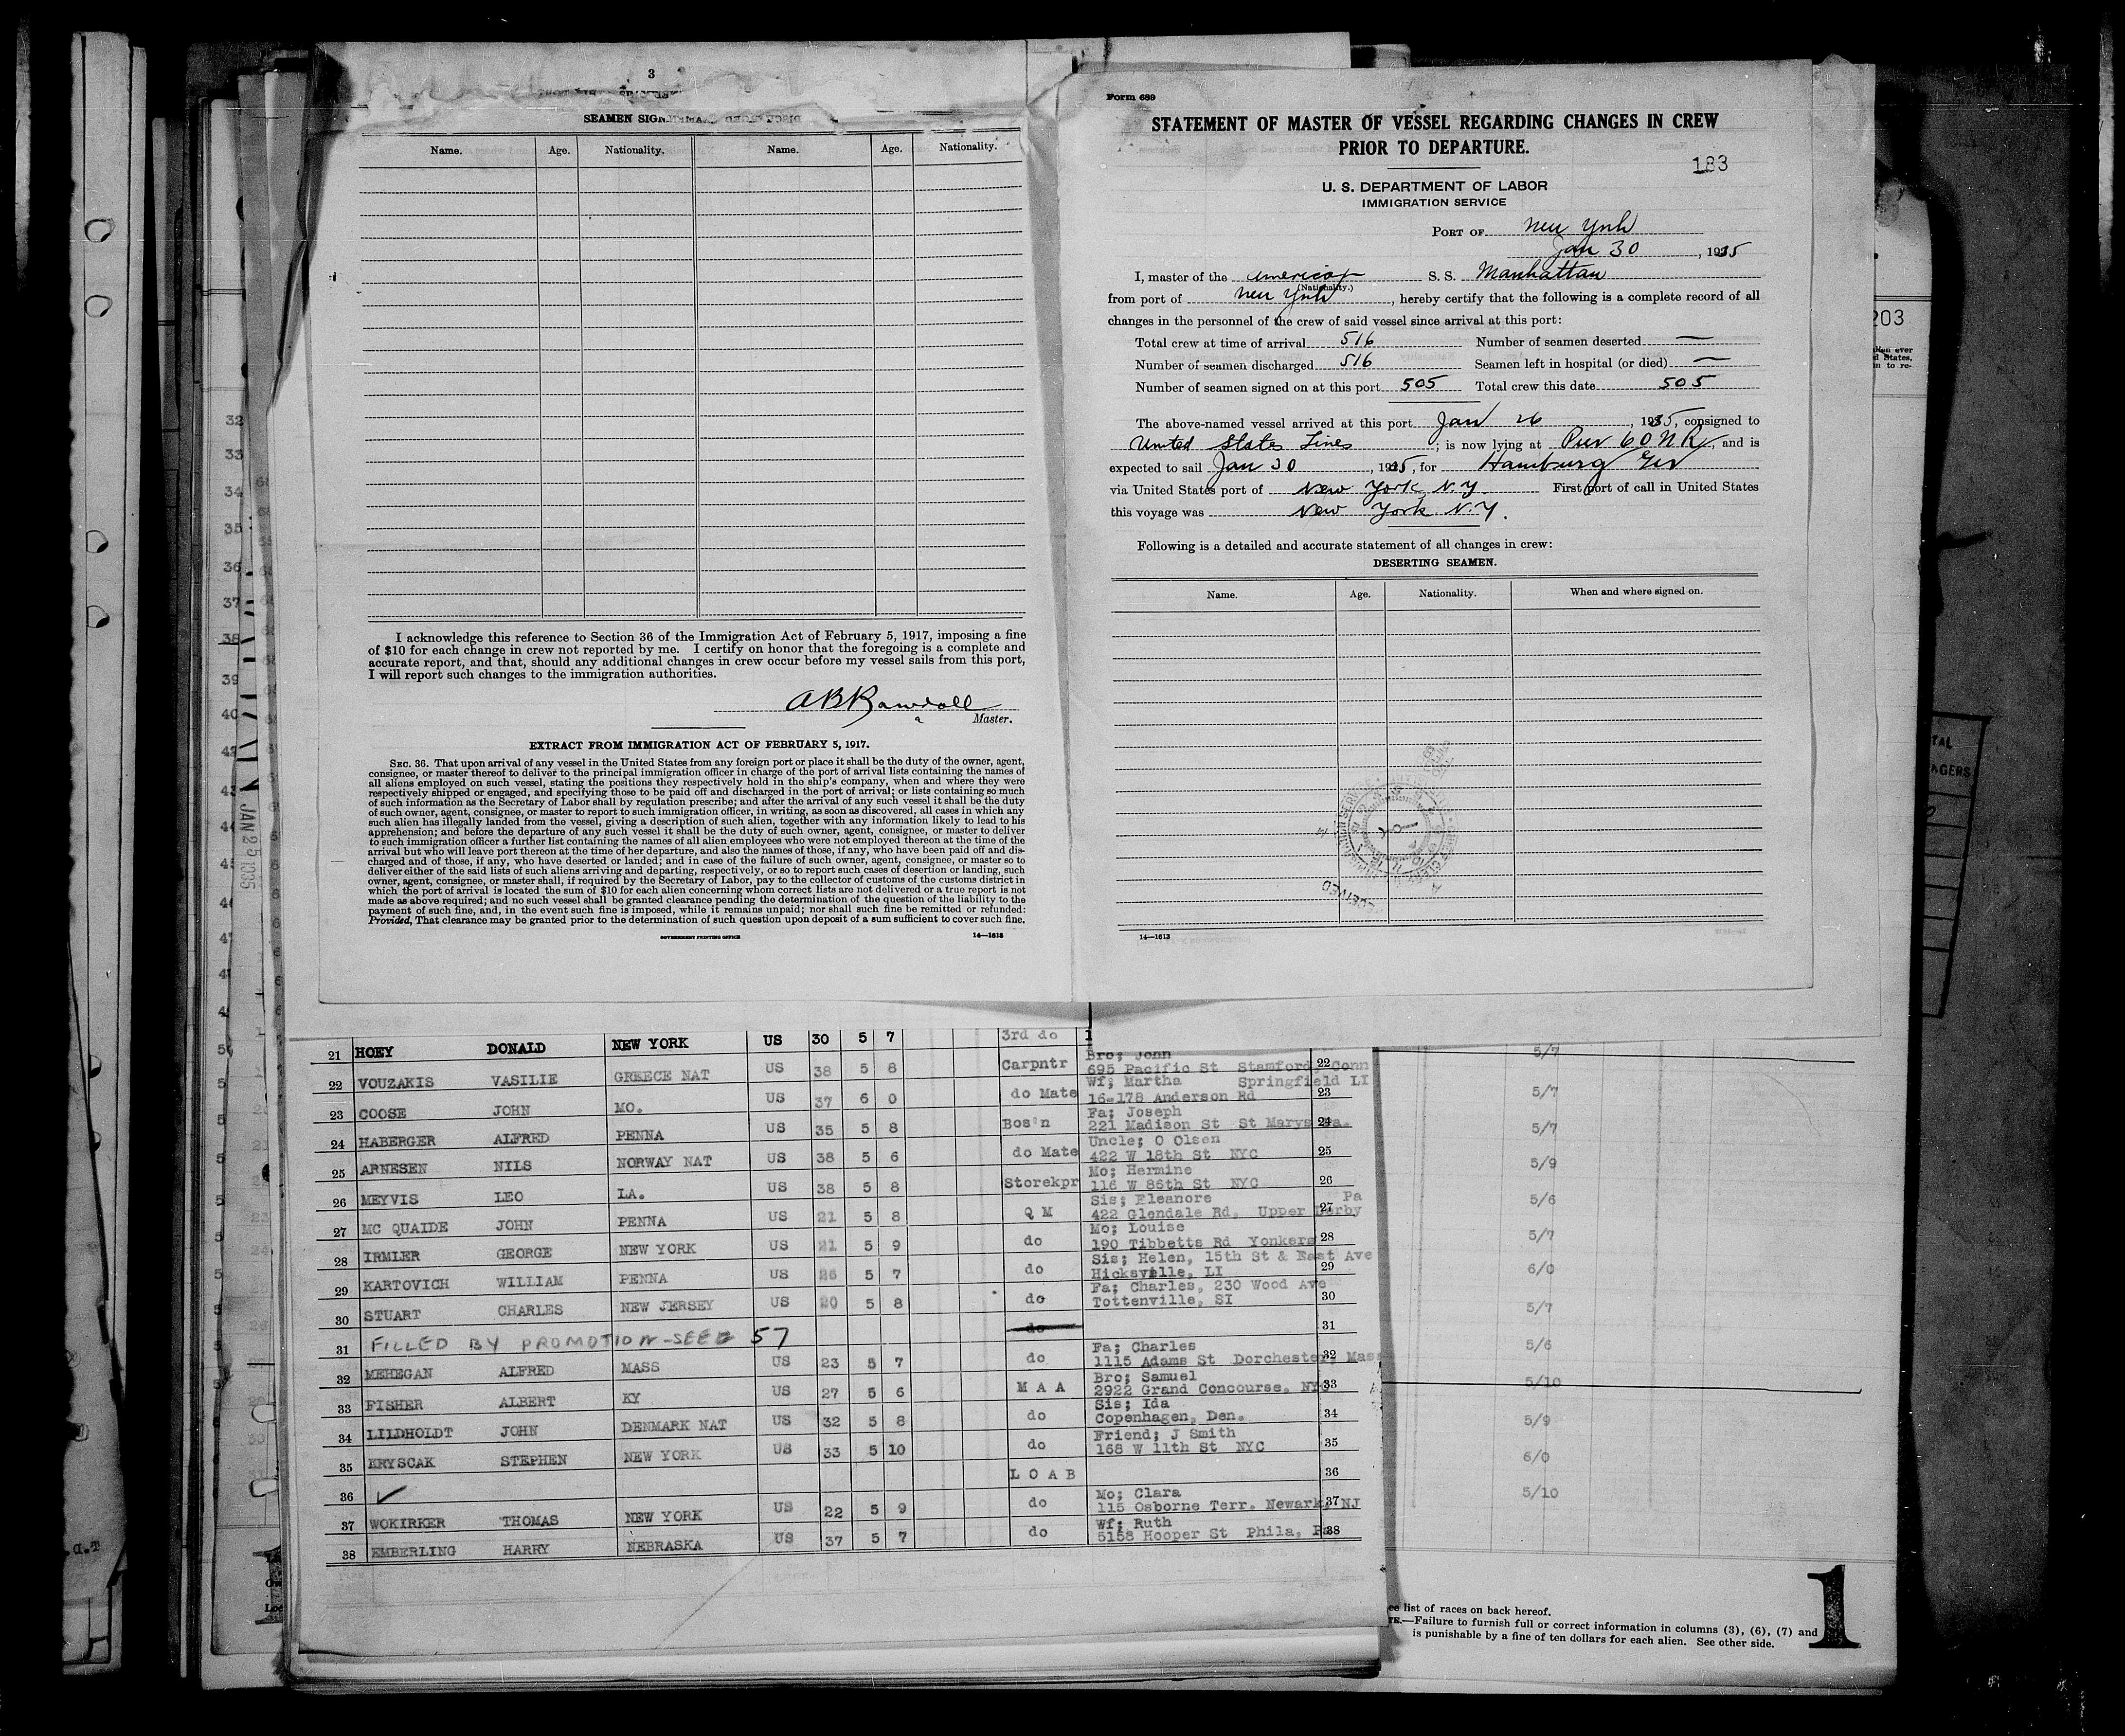 3
SEAMEN SIGN
Name. Age. Nationality. Name. Age. Nationality.
I acknowledge this reference to Section 36 of the Immigration Act of February 5, 1917, imposing a fine
of $10 for each change in crew not reported by me. I certify on honor that the foregoing is a complete and
accurate report, and that, should any additional changes in crew occur before my vessel sails from this port,
I will report such changes to the immigration authorities.
A B Randall
Master.
EXTRACT FROM IMMIGRATION ACT OF FEBRUARY 5, 1917.
SEC. 36. That upon arrival of any vessel in the United States from any foreign port or place it shall be the duty of the owner, agent,
consignee, or master thereof to deliver to the principal immigration officer in charge of the port of arrival lists containing the names of
all aliens employed on such vessel, stating the positions they respectively hold in the ship's company, when and where they were
respectively shipped or engaged, and specifying those to be paid off and discharged in the port of arrival; or lists containing so much
of such information as the Secretary of Labor shall by regulation prescribe; and after the arrival of any such vessel it shall be the duty
of such owner, agent, consignee, or master to report to such immigration officer, in writing, as soon as discovered, all cases in which any
such alien has illegally landed from the vessel, giving a description of such alien, together with any information likely to lead to his
apprehension; and before the departure of any such vessel it shall be the duty of such owner, agent, consignee, or master to deliver
to such immigration officer a further list containing the names of all alien employees who were not employed thereon at the time of the
arrival but who will leave port thereon at the time of her departure, and also the names of those, if any, who have been paid off and dis-
charged and of those, if any, who have deserted or landed; and in case of the failure of such owner, agent, consignee, or master so to
deliver either of the said lists of such aliens arriving and departing, respectively, or so to report such cases of desertion or landing, such
owner, agent, consignee, or master shall, if required by the Secretary of Labor, pay to the collector of customs of the customs district in
which the port of arrival is located the sum of $10 for each alien concerning whom correct lists are not delivered or a true report is not
made as above required; and no such vessel shall be granted clearance pending the determination of the question of the liability to the
payment of such fine, and, in the event such fine is imposed, while it remains unpaid; nor shall such fine be remitted or refunded:
Provided, That clearance may be granted prior to the determination of such question upon deposit of a sum sufficient to cover such fine.
GOVERNMENT PRINTING OFFICE 14—1613
Form 689
STATEMENT OF MASTER OF VESSEL REGARDING CHANGES IN CREW
PRIOR TO DEPARTURE.
183
U. S. DEPARTMENT OF LABOR
IMMIGRATION SERVICE
PORT OF New York
Jan 30, 1935
I, master of the American S. S. Manhattan
(Nationality.)
from port of New York, hereby certify that the following is a complete record of all
changes in the personnel of the crew of said vessel since arrival at this port:
Total crew at time of arrival 516 Number of seamen deserted —
Number of seamen discharged 516 Seamen left in hospital (or died) —
Number of seamen signed on at this port 505 Total crew this date 505
The above-named vessel arrived at this port Jan 26, 1935, consigned to
United States Lines; is now lying at Pier 60 N R, and is
expected to sail Jan 30, 1935, for Hamburg Ger
via United States port of New York, N.Y First port of call in United States
this voyage was New York N.Y.
Following is a detailed and accurate statement of all changes in crew:
DESERTING SEAMEN.
Name. Age. Nationality. When and where signed on.
14—1613
203
JAN 25 1935
21 HOEY DONALD NEW YORK US 30 5 7 3rd do 1
Bro; John
22 VOUZAKIS VASILIE GREECE NAT US 38 5 8 Carpntr 695 Pacific St Stamford, Conn 22
Wf; Martha Springfield LI
23 COOSE JOHN MO. US 37 6 0 do Mate 16-178 Anderson Rd 23
Fa; Joseph
24 HABERGER ALFRED PENNA US 35 5 8 Bos'n 221 Madison St St Marys Pa. 24
Uncle; O Olsen
25 ARNESEN NILS NORWAY NAT US 38 5 6 do Mate 422 W 18th St NYC 25
Mo; Hermine
26 MEYVIS LEO LA. US 38 5 8 Storekpr 116 W 86th St NYC 26
Sis; Eleanore Pa
27 MC QUAIDE JOHN PENNA US 21 5 8 Q M 422 Glendale Rd, Upper Darby 27
Mo; Louise
28 IRMLER GEORGE NEW YORK US 21 5 9 do 190 Tibbetts Rd Yonkers 28
Sis; Helen, 15th St & East Ave
29 KARTOVICH WILLIAM PENNA US 26 5 7 do Hicksville, LI 29
Fa; Charles, 230 Wood Ave
30 STUART CHARLES NEW JERSEY US 20 5 8 do Tottenville, SI 30
31 FILLED BY PROMOTION-SEE # 57 do 31
Fa; Charles
32 MEHEGAN ALFRED MASS US 23 5 7 do 1115 Adams St Dorchester, Mass 32
Bro; Samuel
33 FISHER ALBERT KY US 27 5 6 M A A 2922 Grand Concourse, NYC 33
Sis; Ida
34 LILDHOLDT JOHN DENMARK NAT US 32 5 8 do Copenhagen, Den. 34
Friend; J Smith
35 KRYSCAK STEPHEN NEW YORK US 33 5 10 do 168 W 11th St NYC 35
36 L O A B 36
Mo; Clara
37 WOKIRKER THOMAS NEW YORK US 22 5 9 do 115 Osborne Terr. Newark, NJ 37
Wf; Ruth
38 EMBERLING HARRY NEBRASKA US 37 5 7 do 5158 Hooper St Phila, Pa 38
5/7
5/7
5/7
5/9
5/6
5/7
6/0
5/7
5/6
5/10
5/9
6/0
5/10
ee list of races on back hereof.
TE.—Failure to furnish full or correct information in columns (3), (6), (7) and
is punishable by a fine of ten dollars for each alien. See other side.
1